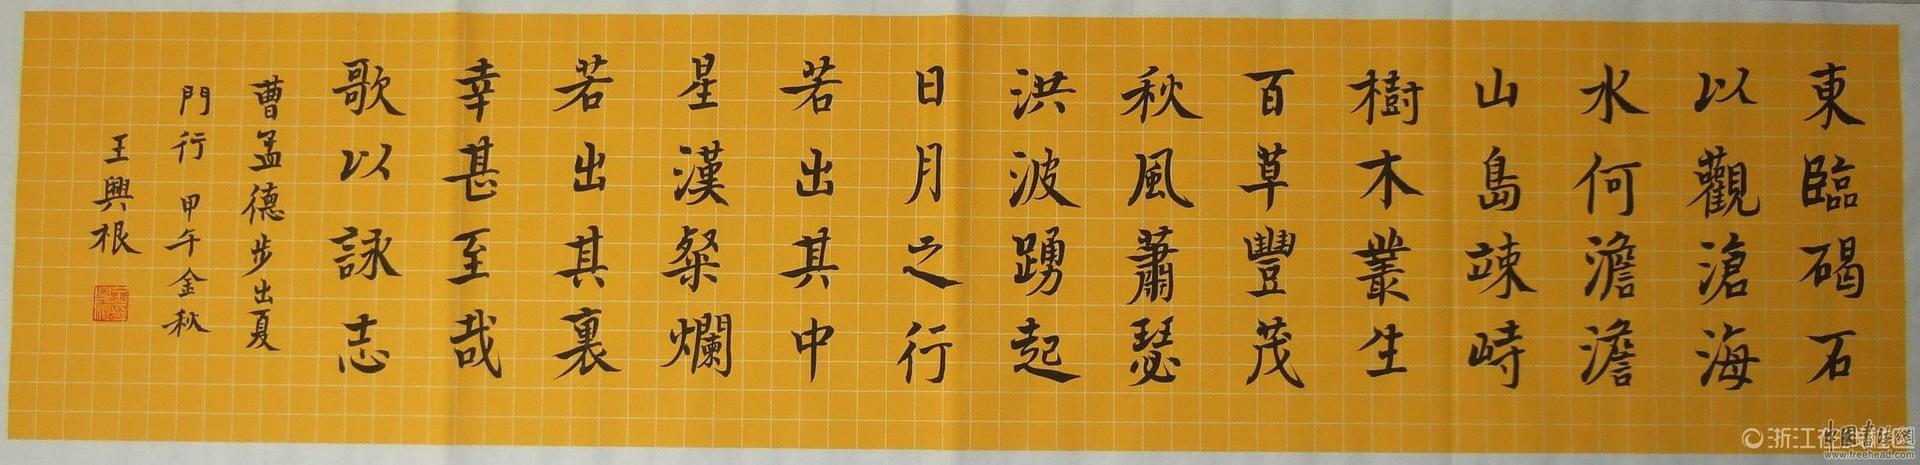 東臨碣石
以觀滄海
水何澹澹
山島竦峙
樹木叢生
百草豐茂
秋風蕭瑟
洪波踴起
日月之行
若出其中
星漢粲爛
若出其裏
幸甚至哉
歌以詠志
曹孟德步出夏
門行 甲午金秋
王興根
浙江在线
www.freehead.com